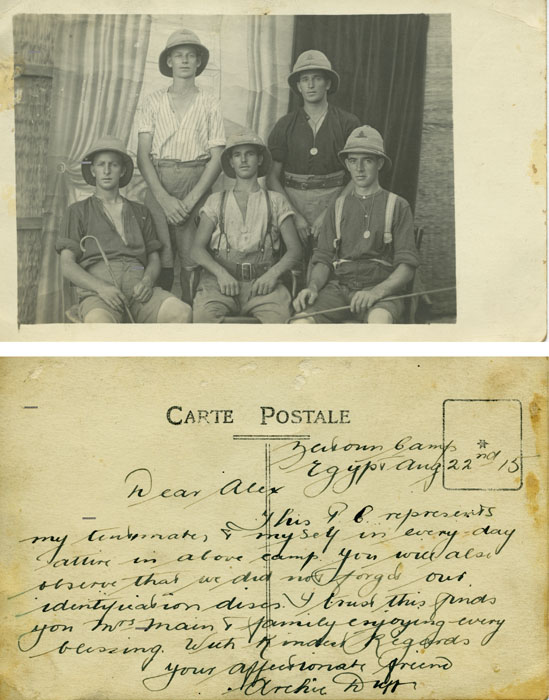 CARTE POSTALE
Zeitoun Camp
Egypt Aug 22nd 15
Dear Alex
This P C. represents
my tentmates, & myself in every-day
attire in above camp you will also
observe that we did not forget our
identification discs. I trust this finds
you Mrs Main & family enjoying every
blessing. With Kindest Regards
your affectionate friend
Archie Duff